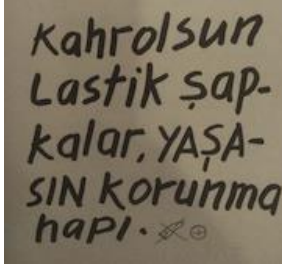 Kahrolsun
Lastik şap-
kalar, YAŞA-
SIN korunma
hapı.